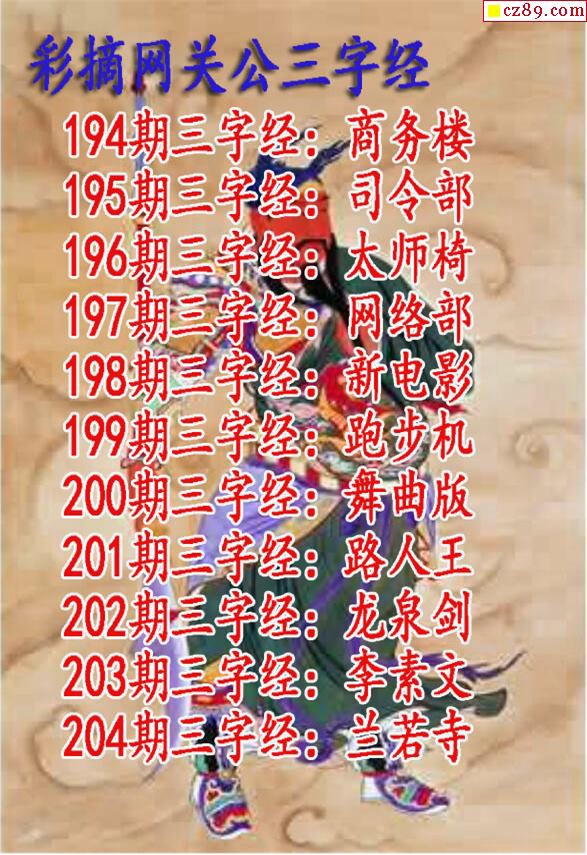 cz89.com
彩摘网关公三字经
194期三字经：商务楼
195期三字经：司令部
196期三字经：太师椅
197期三字经：网络部
198期三字经：新电影
199期三字经：跑步机
200期三字经：舞曲版
201期三字经：路人王
202期三字经：龙泉剑
203期三字经：李素文
204期三字经：兰若寺